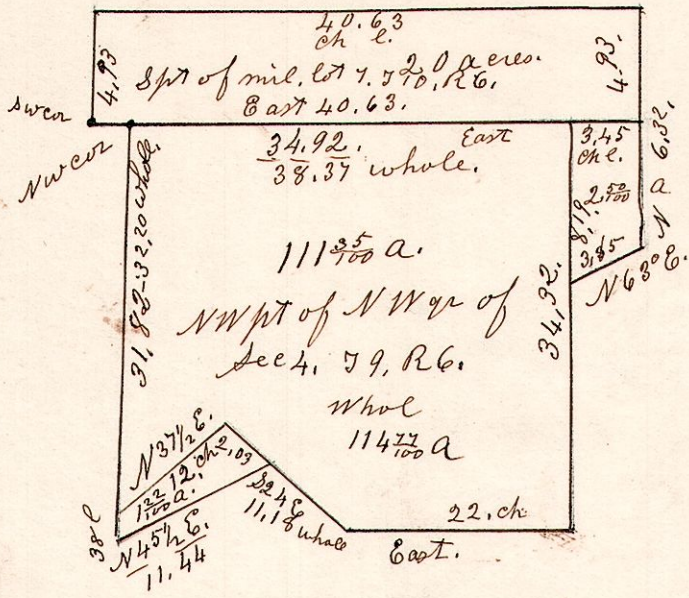 40.63
ch l.
4,93
Spt of mil. lot 7. T10, R6.
20 acres.
East 40.63.
4.93.
SW cor
NW cor
34.92.
38.37 whole.
East
3,45
ch l.
6,32.
N a
8,19
2 50/100
3,85
N 63° E.
31,82-32,20 whole.
111 35/100 a.
34,92.
NW pt of NW qr of
Sec 4. T9, R6.
Whol
114 77/100 A
N 37 1/2 E.
12, ch 2,03
1 22/100 a.
S 24 E
11,18 whole
22. ch
East.
38 l
N 45 1/2 E.
11.44